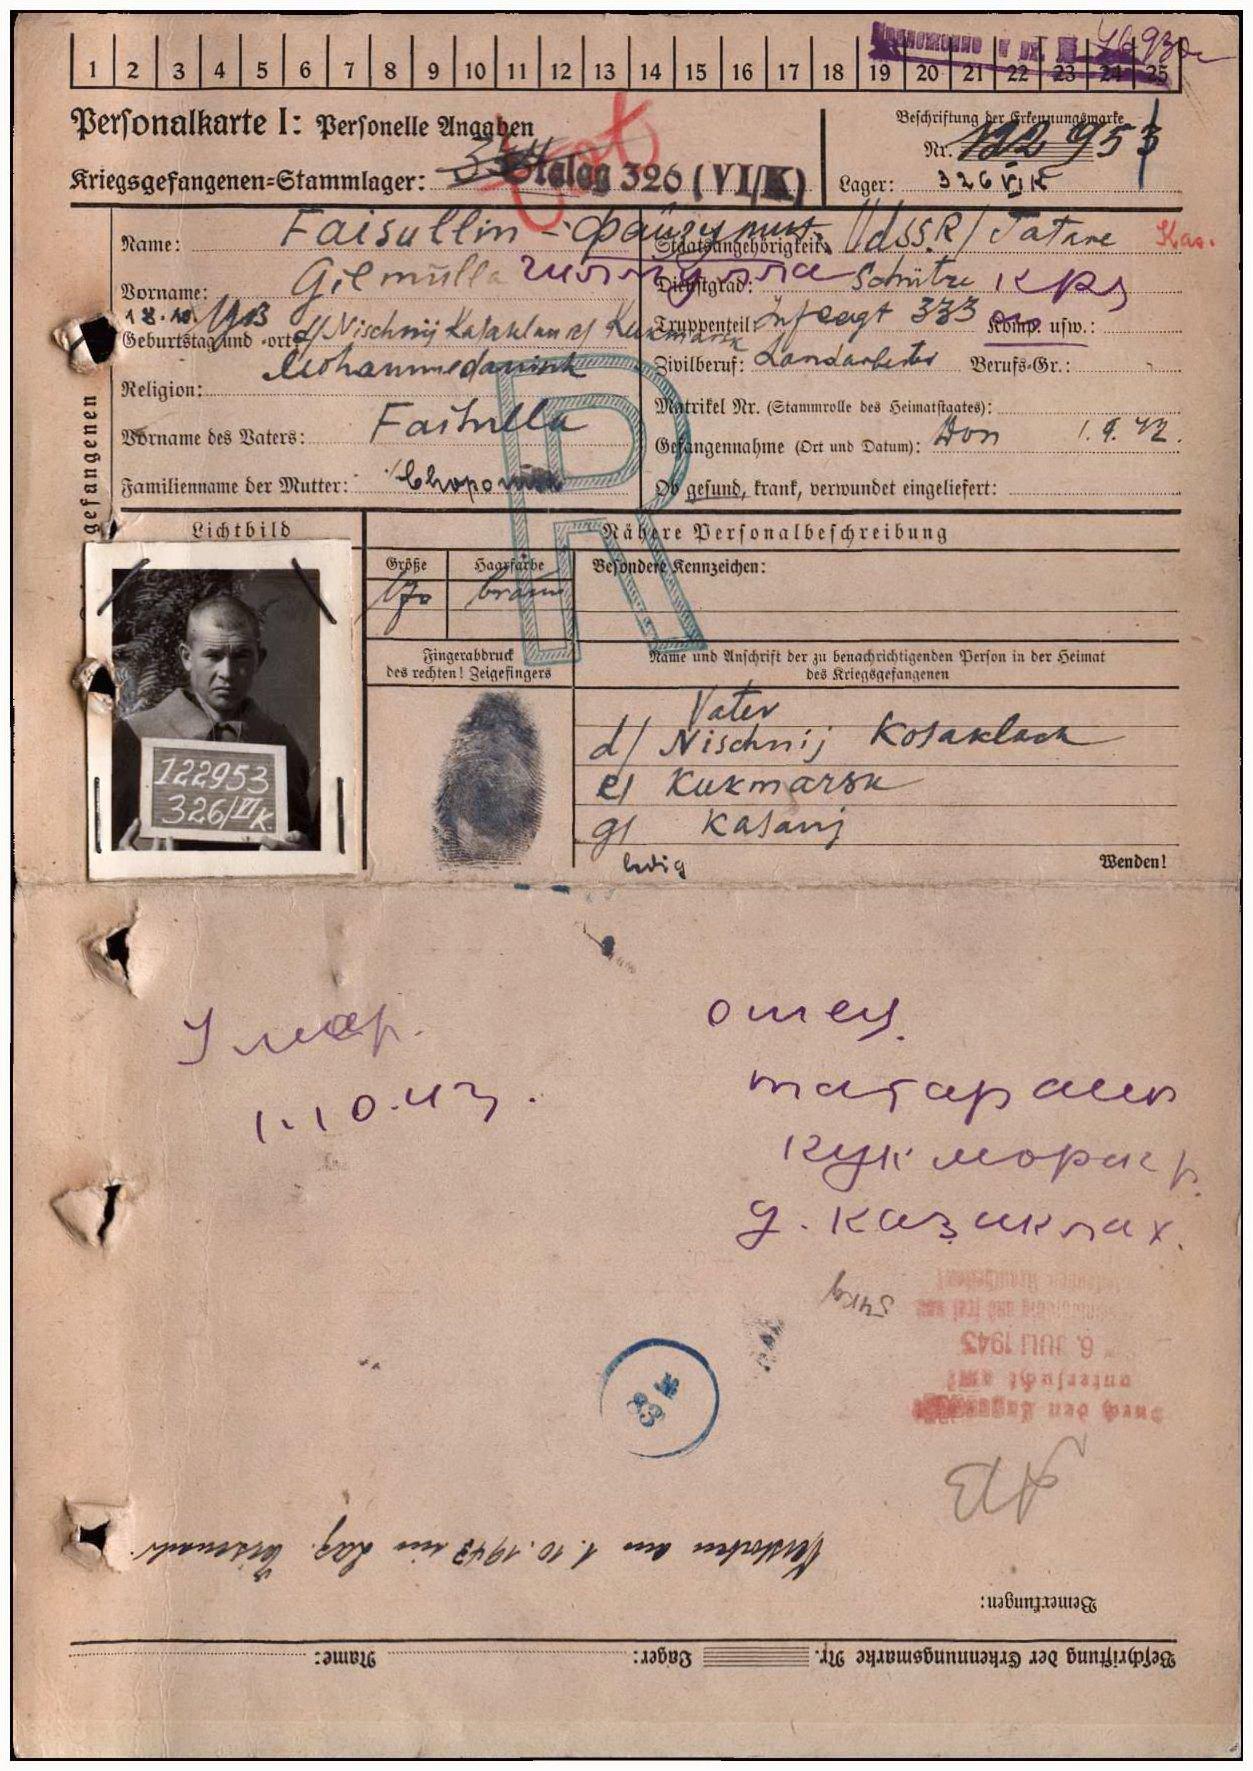 1 2 3 4 5 6 7 8 9 10 11 12 13 14 15 16 17 18 19 20 21 22 23 24 25
Personalkarte I: Personelle Angaben
Beschriftung der Erkennungsmarke
Nr. 122953
Kriegsgefangenen=Stammlager: Stalag 326 (VI/K)
Lager: 326 VI K
tot
Name: Faisullin -
Staatsangehörigkeit: UdSSR / Tatare
Vorname: Gilmulla гилмулла
Dienstgrad: Schütze
Geburtstag und -ort: 18.10.1913 d/ Nischnij Kasaklar e/ Kukmarsk
Truppenteil: Inf. Regt 333 Komp. usw.:
Zivilberuf: Landarbeiter Berufs=Gr.: -
Religion: Mohammedanisch
Matrikel Nr. (Stammrolle des Heimatstaates):
Vorname des Vaters: Faisulla
Gefangennahme (Ort und Datum): Don 1.9.42.
Familienname der Mutter:
Ob gesund, krank, verwundet eingeliefert:
gefangenen
R
Lichtbild
Nähere Personalbeschreibung
Größe Haarfarbe Besondere Kennzeichen:
170 braun
Fingerabdruck
des rechten! Zeigefingers
Name und Anschrift der zu benachrichtigenden Person in der Heimat
des Kriegsgefangenen
Vater
d/ Nischnij Kosaklach
e/ Kukmarsk
g/ Kasanj
ledig
Wenden!
122953
326/VI K.
Умер.
1.10.43.
отец.
Кукморск р.
д. Казаклах.
54 kg
6. JULI 1943
untersucht am:
Durch den
83 *
Verstorben am 1.10.1943 im Lag.
Bemerkungen:
Beschriftung der Erkennungsmarke Nr. Lager: Name: